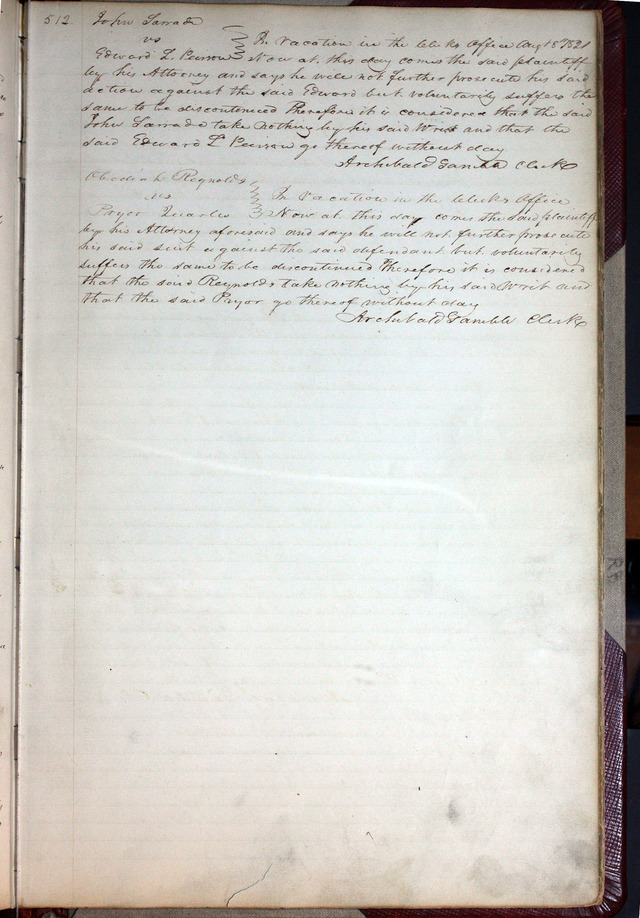 512. John Larrade
vs
In Vacation in the Clerks Office Aug 1821
Edward L. Pearson Now at this day comes the said plaintiff
by his Attorney and says he will not further prosecute his said
action against the said Edward but voluntarily suffers the
same to be discontinued Therefore it is considered that the said
John Larrade take nothing by his said Writ and that the
said Edward L Pearson go thereof without day
Archibald Gamble Clerk
Obediah Reynolds
vs In Vacation in the Clerks Office
Pryor Quarles Now at this day comes the said plaintiff
by his Attorney aforesaid and says he will not further prosecute
his said suit against the said defendant but voluntarily
suffers the same to be discontinued Therefore it is considered
that the said Reynolds take nothing by his said Writ and
that the said Pryor go thereof without day
Archibald Gamble Clerk